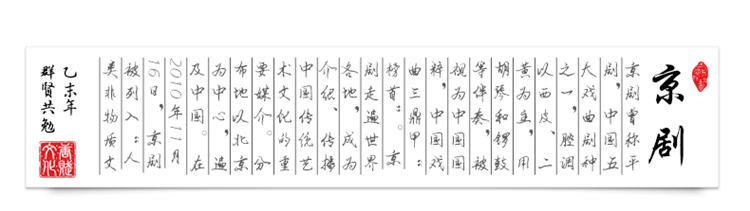 京剧
京剧曾称平
剧，中国五
大戏曲剧种
之一，腔调
以西皮、二
黄为主，用
胡琴和锣鼓
等伴奏，被
视为中国国
粹，中国戏
曲三鼎甲“
榜首”。京
剧走遍世界
各地，成为
介绍、传播
中国传统艺
术文化的重
要媒介。分
布地以北京
为中心，遍
及中国。在
2010年11月
16日，京剧
被列入“人
类非物质文
乙未年
群賢共勉
文化